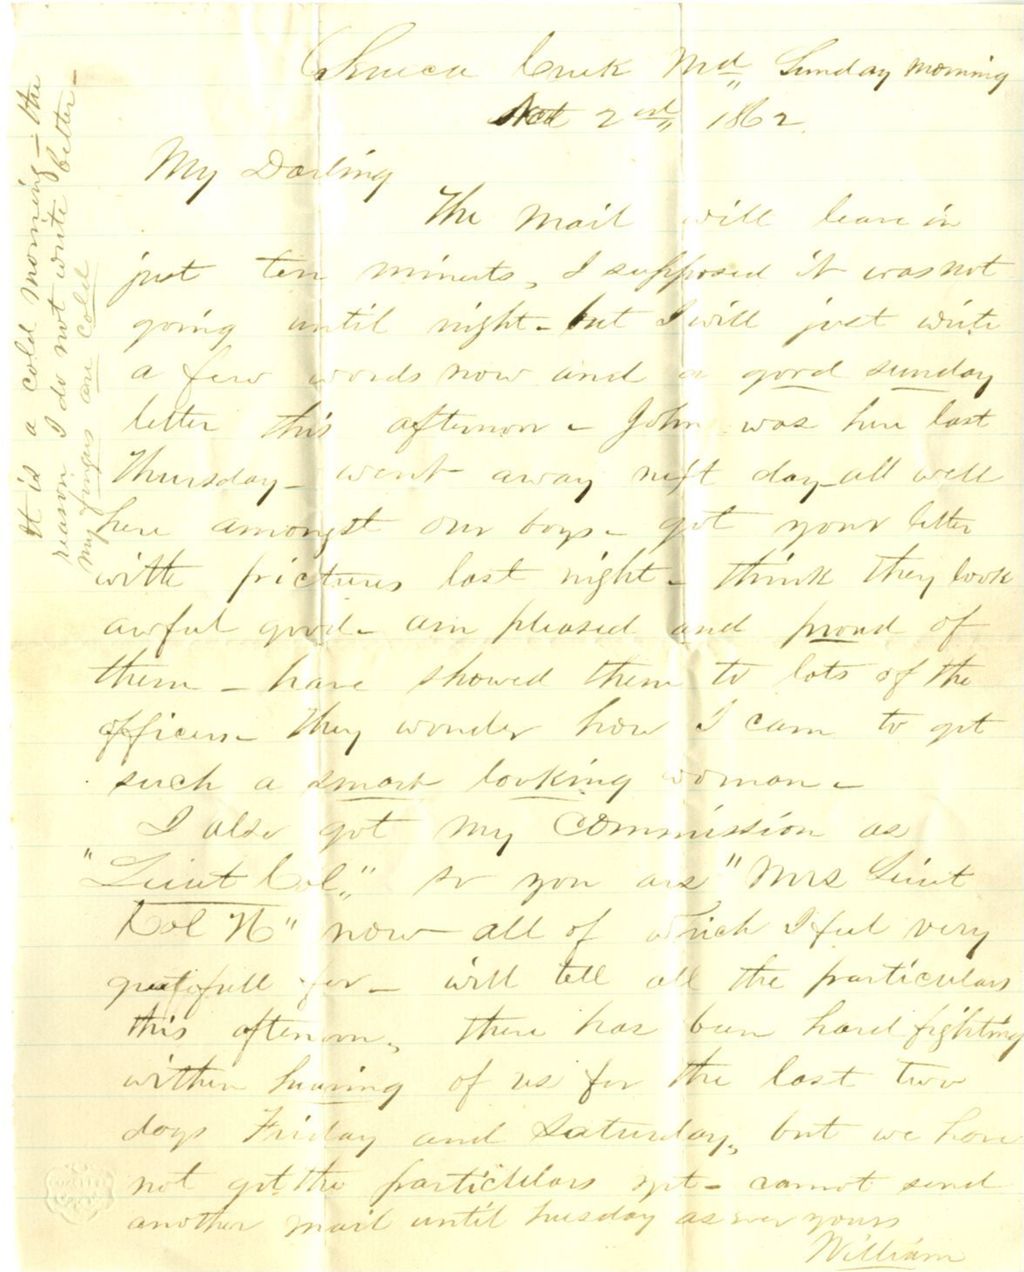 Seneca Creek Md Sunday morning
Nov 2nd 1862
My Darling
The mail will leave in
just ten minuts, I supposed it was not
going until night - but I will just write
a few words now and a good sunday
letter this afternoon - John was here last
Thursday - went away next day - all well
here amongst our boys - got your letter
with pictures last night - think they look
awful good - am pleased and proud of
them - have showed them to lots of the
officers - they wonder how I cam to get
such a smart looking woman -
I also got my commission as
"Lieut Col," so you are "Mrs Lieut
Col N" now - all of which I feel very
gratefull for - will tell all the particulars
this afternoon, there has been hard fighting
within hearing of us for the last two
days Friday and Saturday, but we have
not got the particulars yet - cannot send
another mail until tuesday as ever yours
William
It is a cold morning - the
reason I do not write better -
my fingers are cold